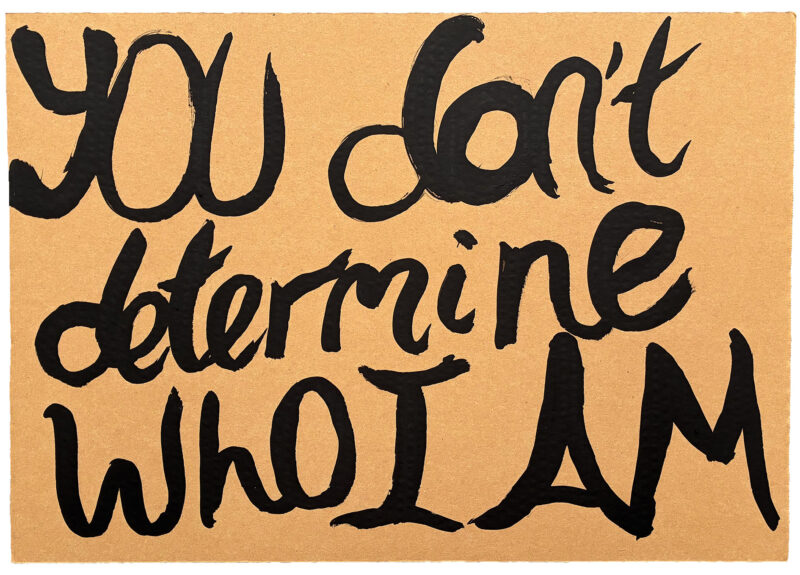 YOU don't
determine
WhO I AM